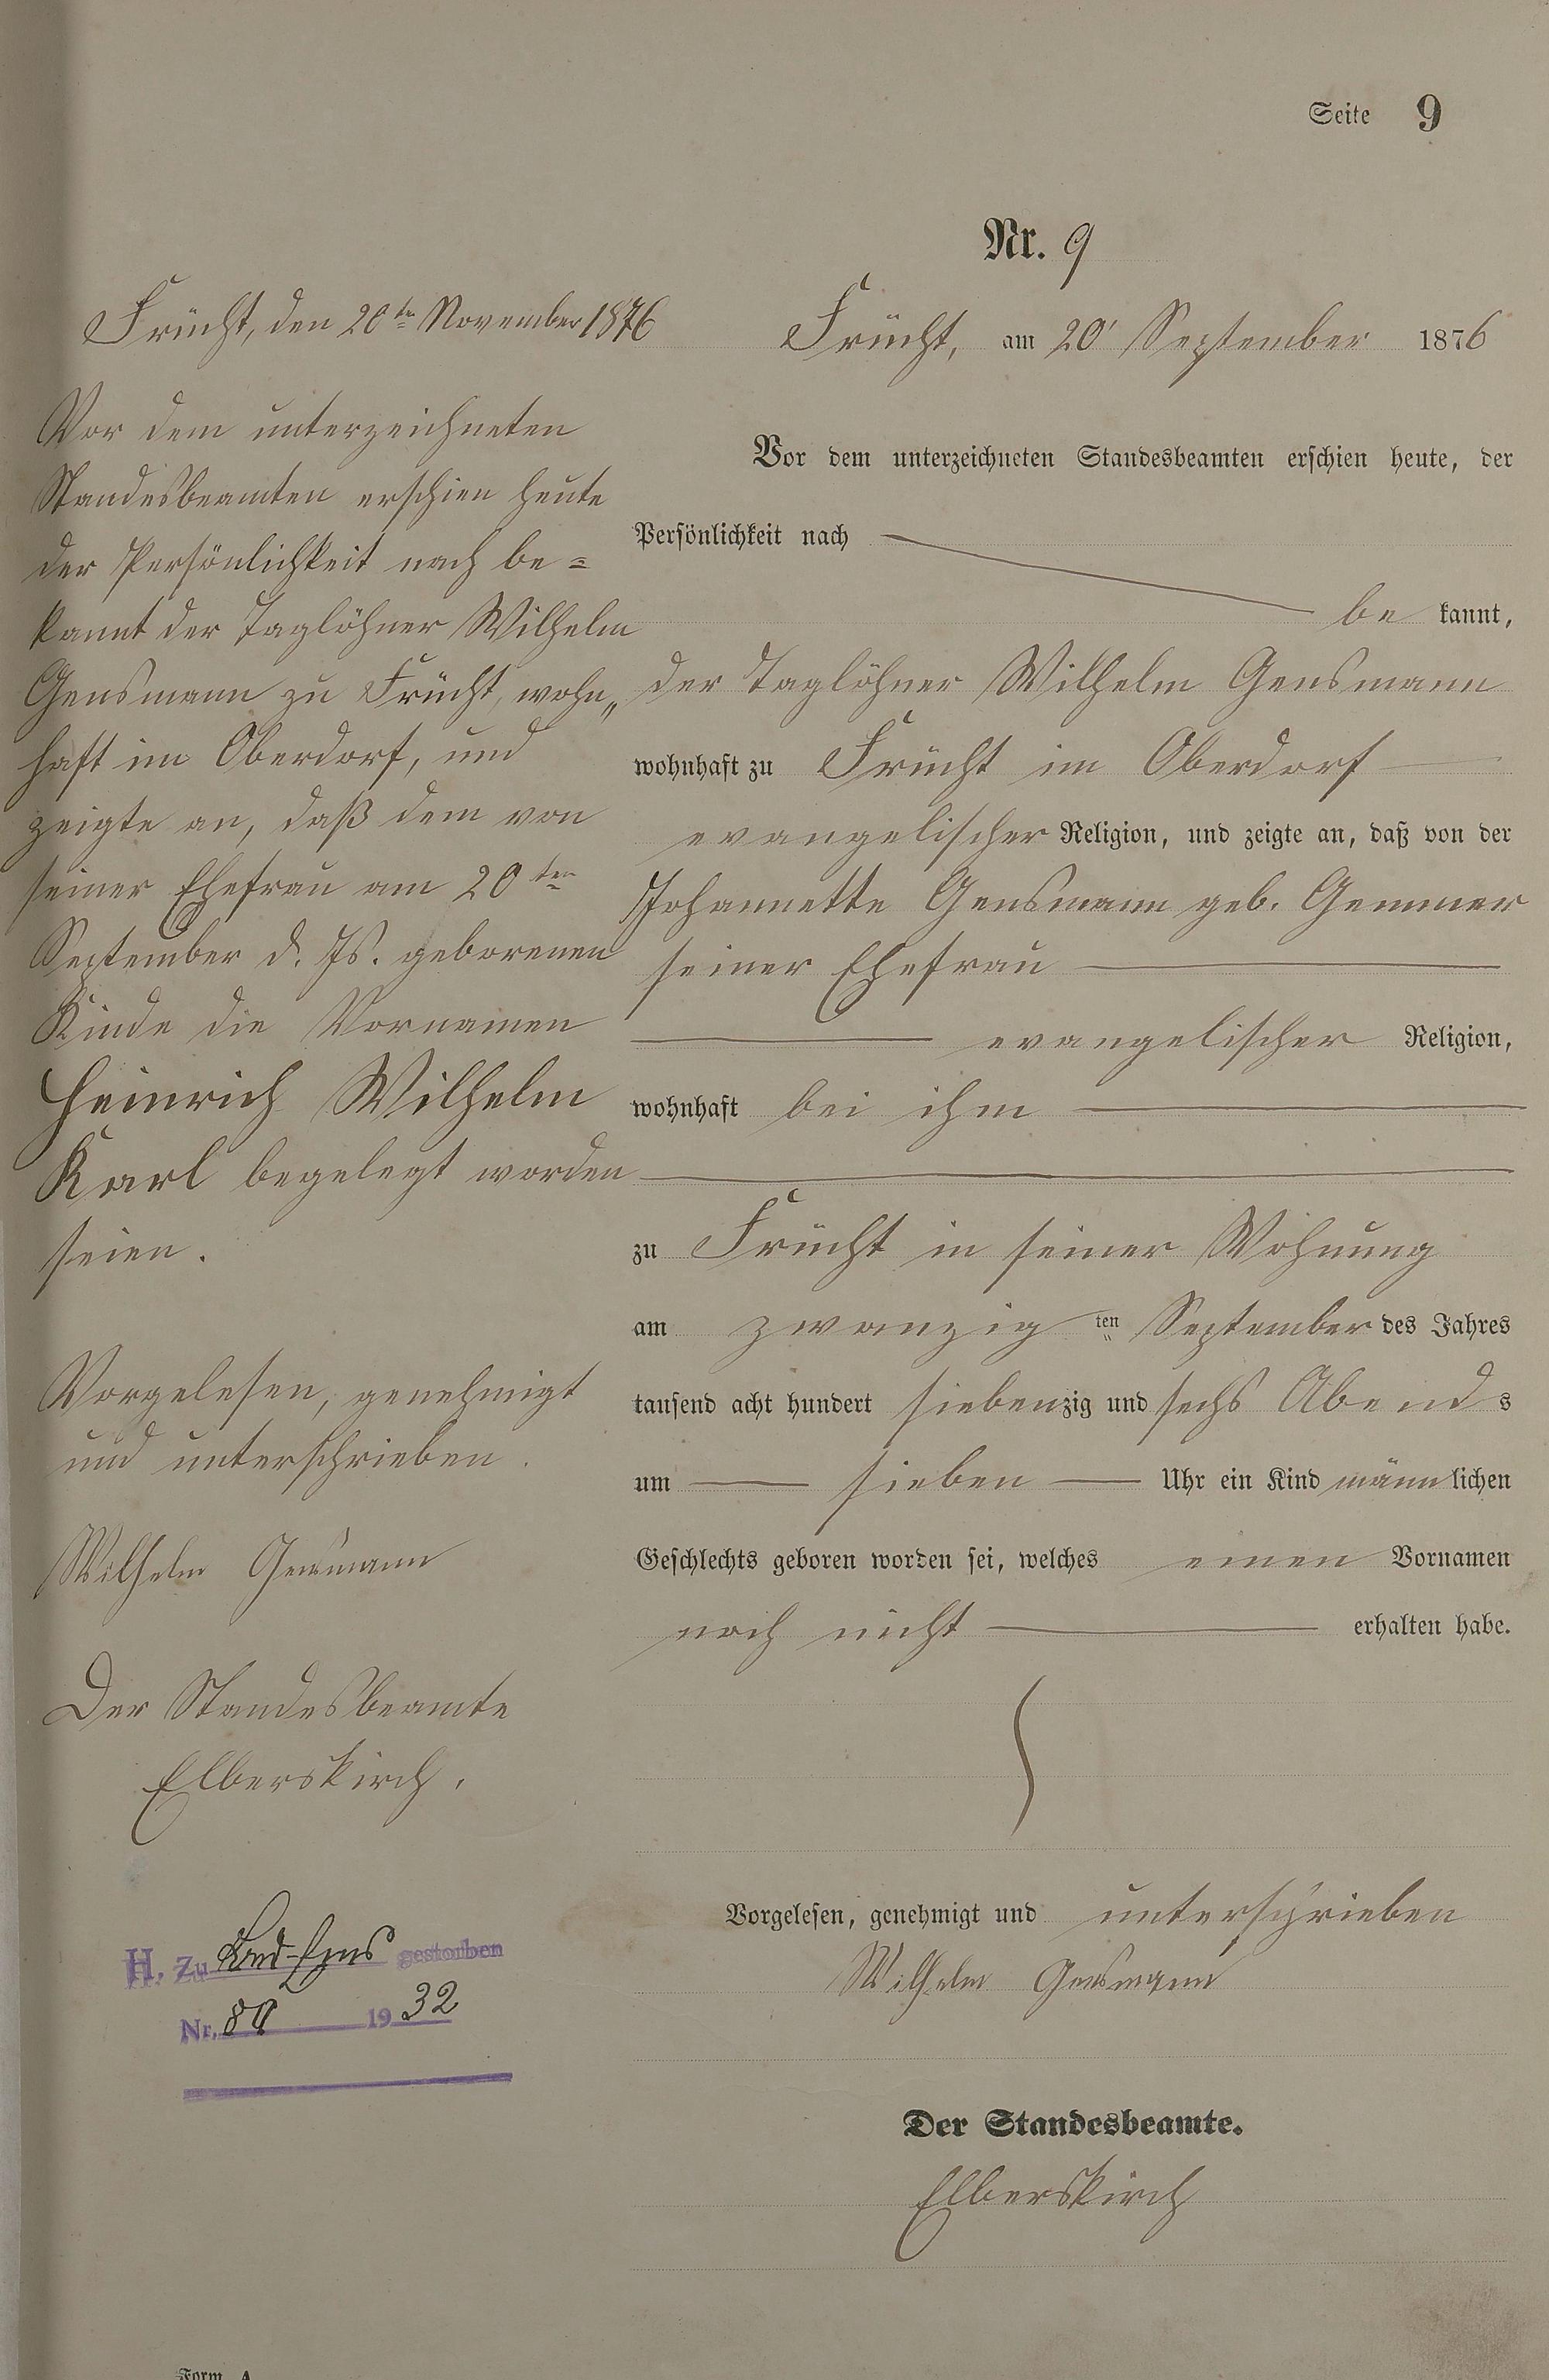 Seite 9
Nr. 9
Frücht, am 20' September 1876
Vor dem unterzeichneten Standesbeamten erschien heute, der
Persönlichkeit nach
be kannt,
der Taglöhner Wilhelm Gensmann
wohnhaft zu Frücht im Oberdorf
evangelischer Religion, und zeigte an, daß von der
Johannette Gensmann geb. Gemmer
seiner Ehefrau
evangelischer Religion,
wohnhaft bei ihm
zu Frücht in seiner Wohnung
am zwanzig ten September des Jahres
tausend acht hundert siebenzig und sechs Abend s
um sieben Uhr ein Kind männlichen
Geschlechts geboren worden sei, welches einen Vornamen
noch nicht erhalten habe.
Vorgelesen, genehmigt und unterschrieben
Wilhelm Gensmann
Der Standesbeamte.
Elberskirch
Frücht, den 20ten November 1876
Vor dem unterzeichneten
Standesbeamten erschien heute
der Persönlichkeit nach be=
kannt der Taglöhner Wilhelm
Gensmann zu Frücht, wohn„
haft im Oberdorf, und
zeigte an, daß dem von
seiner Ehefrau am 20ten
September d. Js. geborenen
Kinde die Vornamen
Heinrich Wilhelm
Karl begelegt worden
seien.
Vorgelesen, genehmigt
und unterschrieben.
Wilhelm Gensmann
Der Standesbeamte
Elberskirch.
H. Zu Bad-Ems gestorben
Nr. 1932
Form A